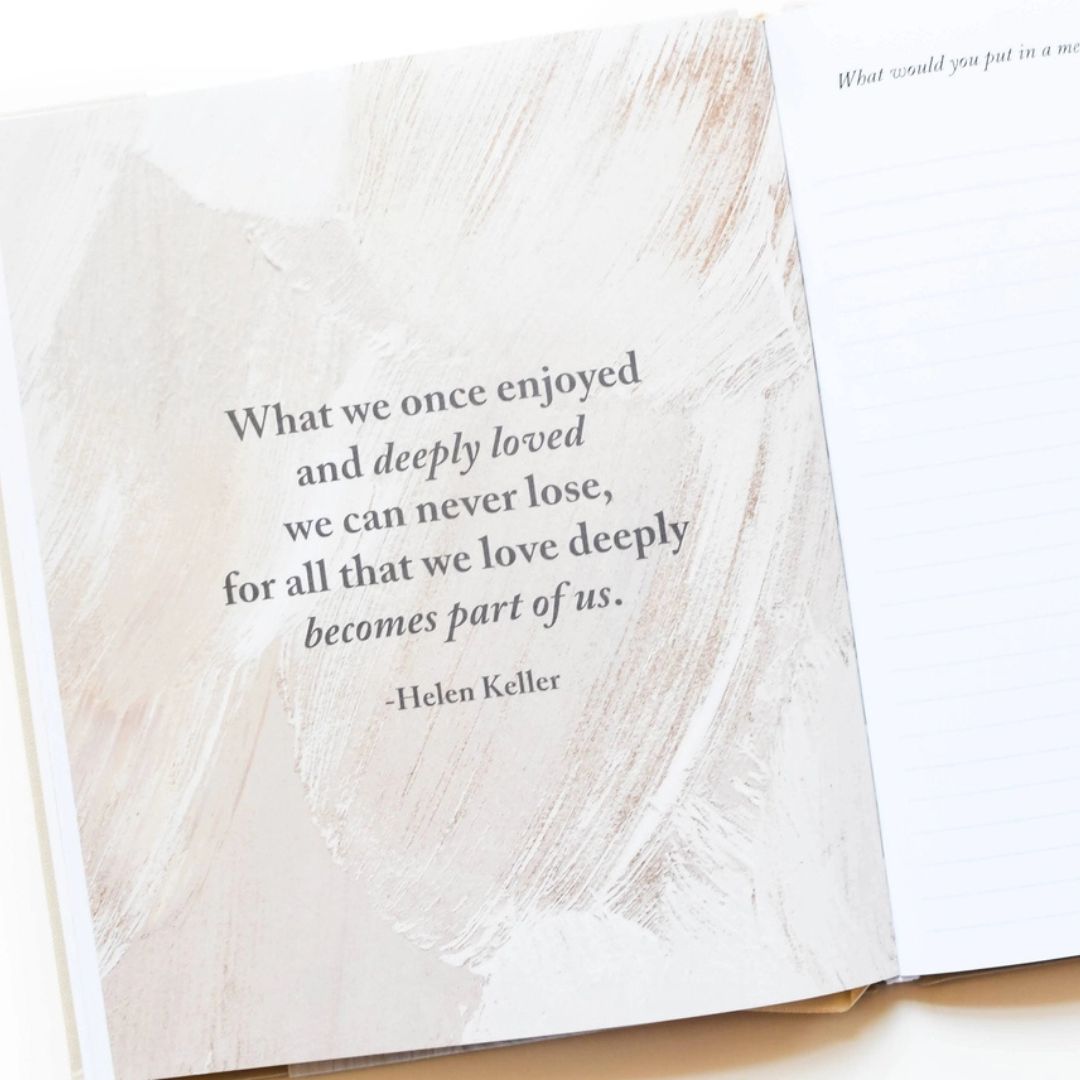 What we once enjoyed
and deeply loved
we can never lose,
for all that we love deeply
becomes part of us.
-Helen Keller
What would you put in a